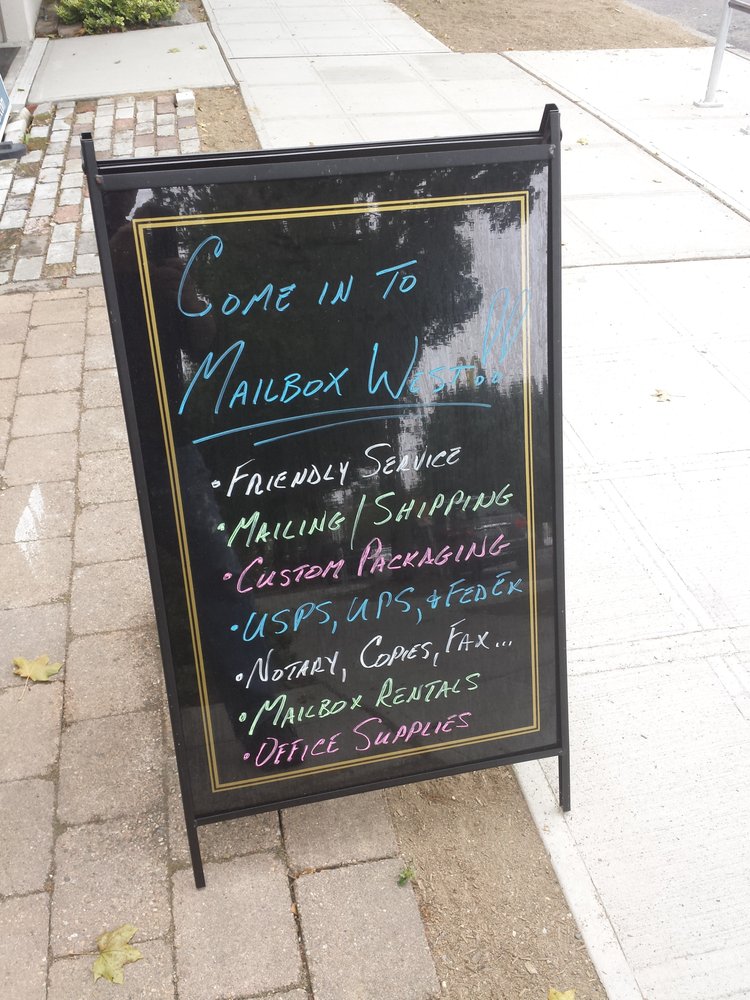 COME IN TO
MAILBOX WEST!!
• FRIENDLY SERVICE
• MAILING/SHIPPING
• CUSTOM PACKAGING
• USPS, UPS, & FEDEX
• NOTARY, COPIES, FAX...
• MAILBOX RENTALS
• OFFICE SUPPLIES